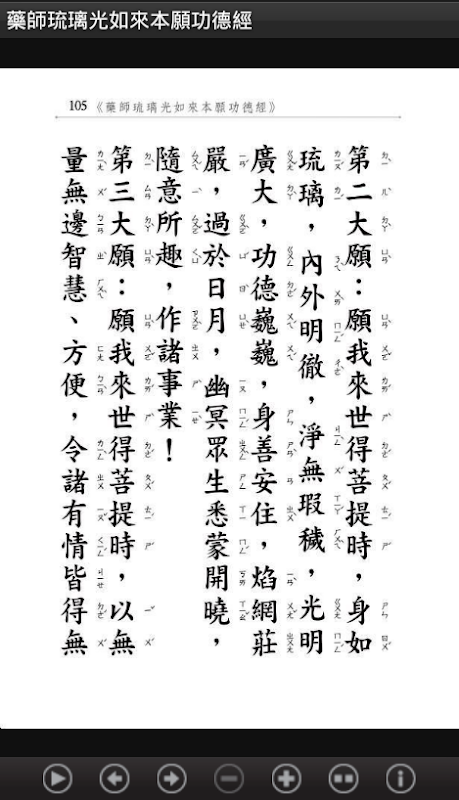 藥師琉璃光如來本願功德經
105 《藥師琉璃光如來本願功德經》
第二大願：願我來世得菩提時，身如
琉璃，內外明徹，淨無瑕穢，光明
廣大，功德巍巍，身善安住，焰網莊
嚴，過於日月，幽冥眾生悉蒙開曉，
隨意所趣，作諸事業！
第三大願：願我來世得菩提時，以無
量無邊智慧、方便，令諸有情皆得無